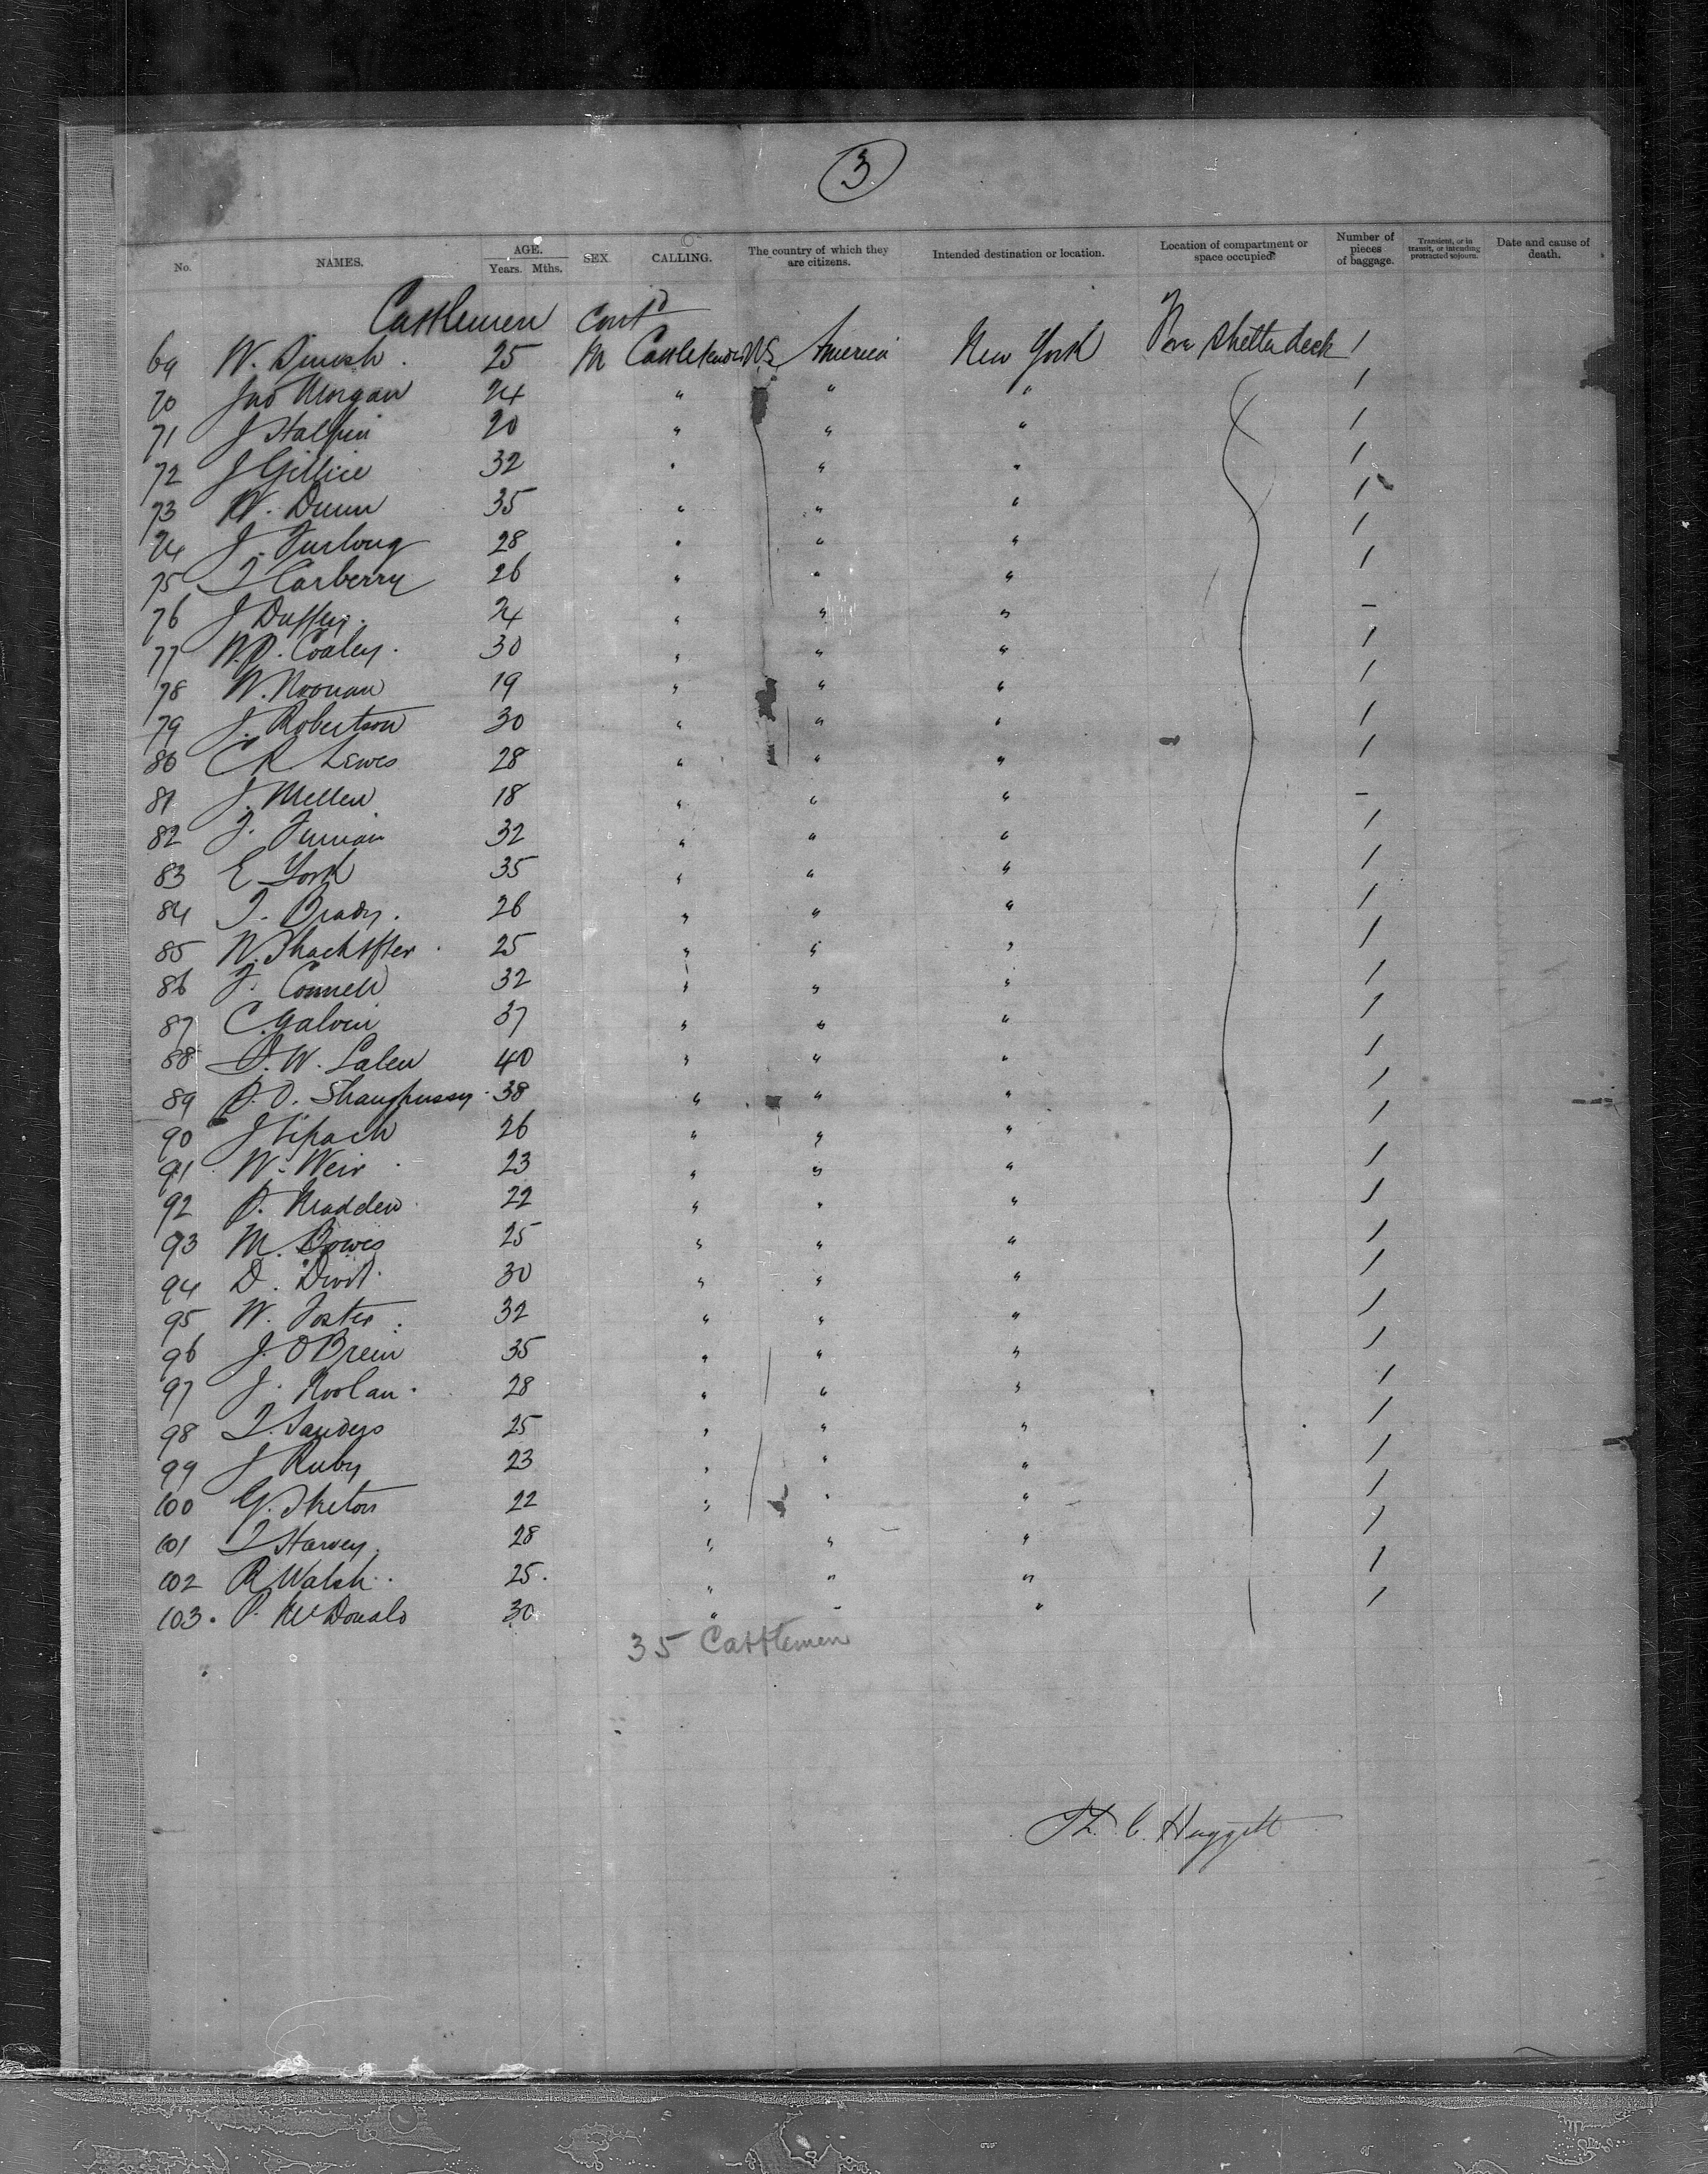 3
No. NAMES. AGE. Years. Mths. SEX. CALLING. The country of which they are citizens. Intended destination or location. Location of compartment or space occupied. Number of pieces of baggage. Transient, or in transit, or intending protracted sojourn. Date and cause of death.
Cattlemen Cont'd
69 W. 25 M Cattletender U.S. America New York Fore Shelter deck 1
70 Jno Morgan 24 " " " 1
71 J Halpin 20 " " " 1
72 J 32 " " " 1
73 W. Dunn 35 " " " 1
74 J. Furlong 28 " " " 1
75 T Carberry 26 " " " 1
76 J Duffey. 24 " " " –
77 W.P. Coaley. 30 " " " 1
78 W. Noonan 19 " " " 1
79 J. Robertson 30 " " " 1
80 C R Lewes 28 " " " 1
81 J. Mellen 18 " " " –
82 32 " " " 1
83 E York 35 " " " 1
84 T. Brady. 26 " " " 1
85 W. 25 " " " 1
86 Connell 32 " " " 1
87 C. Galvin 37 " " " 1
88 W. Lalew 40 " " " 1
89 P. O. Shaughnssy 38 " " " 1
90 J 26 " " " 1
91 W. Weir 23 " " " 1
92 P. Madden 22 " " " 1
93 M. 25 " " " 1
94 D. 30 " " " 1
95 W. Foster 32 " " " 1
96 J. O Brein 35 " " " 1
97 J. Noolan. 28 " " " 1
98 T. Sanders 25 " " " 1
99 J Ruby 23 " " " 1
100 G. 22 " " " 1
101 T Harvey. 28 " " " 1
102 R Walsh. 25. " " " 1
103. P. McDonald 30 " " " 1
35 Cattlemen
Th. C. Huggett